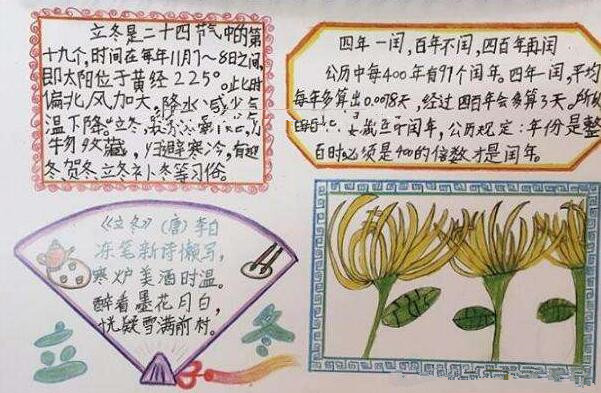 立冬是二十四节气中的第
十九个,时间在每年11月7~8日之间,
即太阳位于黄经225°。此时
偏北风加大,降水减少气
温下降。立冬,表示
物收藏,归避寒冷,有迎
冬、贺冬、立冬补冬等习俗。
四年一闰,百年不闰,四百年再闰
公历中每400年有97个闰年。四年一闰,平均
每年多算出0.0078天,经过四百年会多算3天。所以
闰年,公历规定:年份是整
百时必须是400的倍数才是闰年。
《立冬》(唐)李白
冻笔新诗懒写,
寒炉美酒时温。
醉看墨花月白,
恍疑雪满前村。
立冬